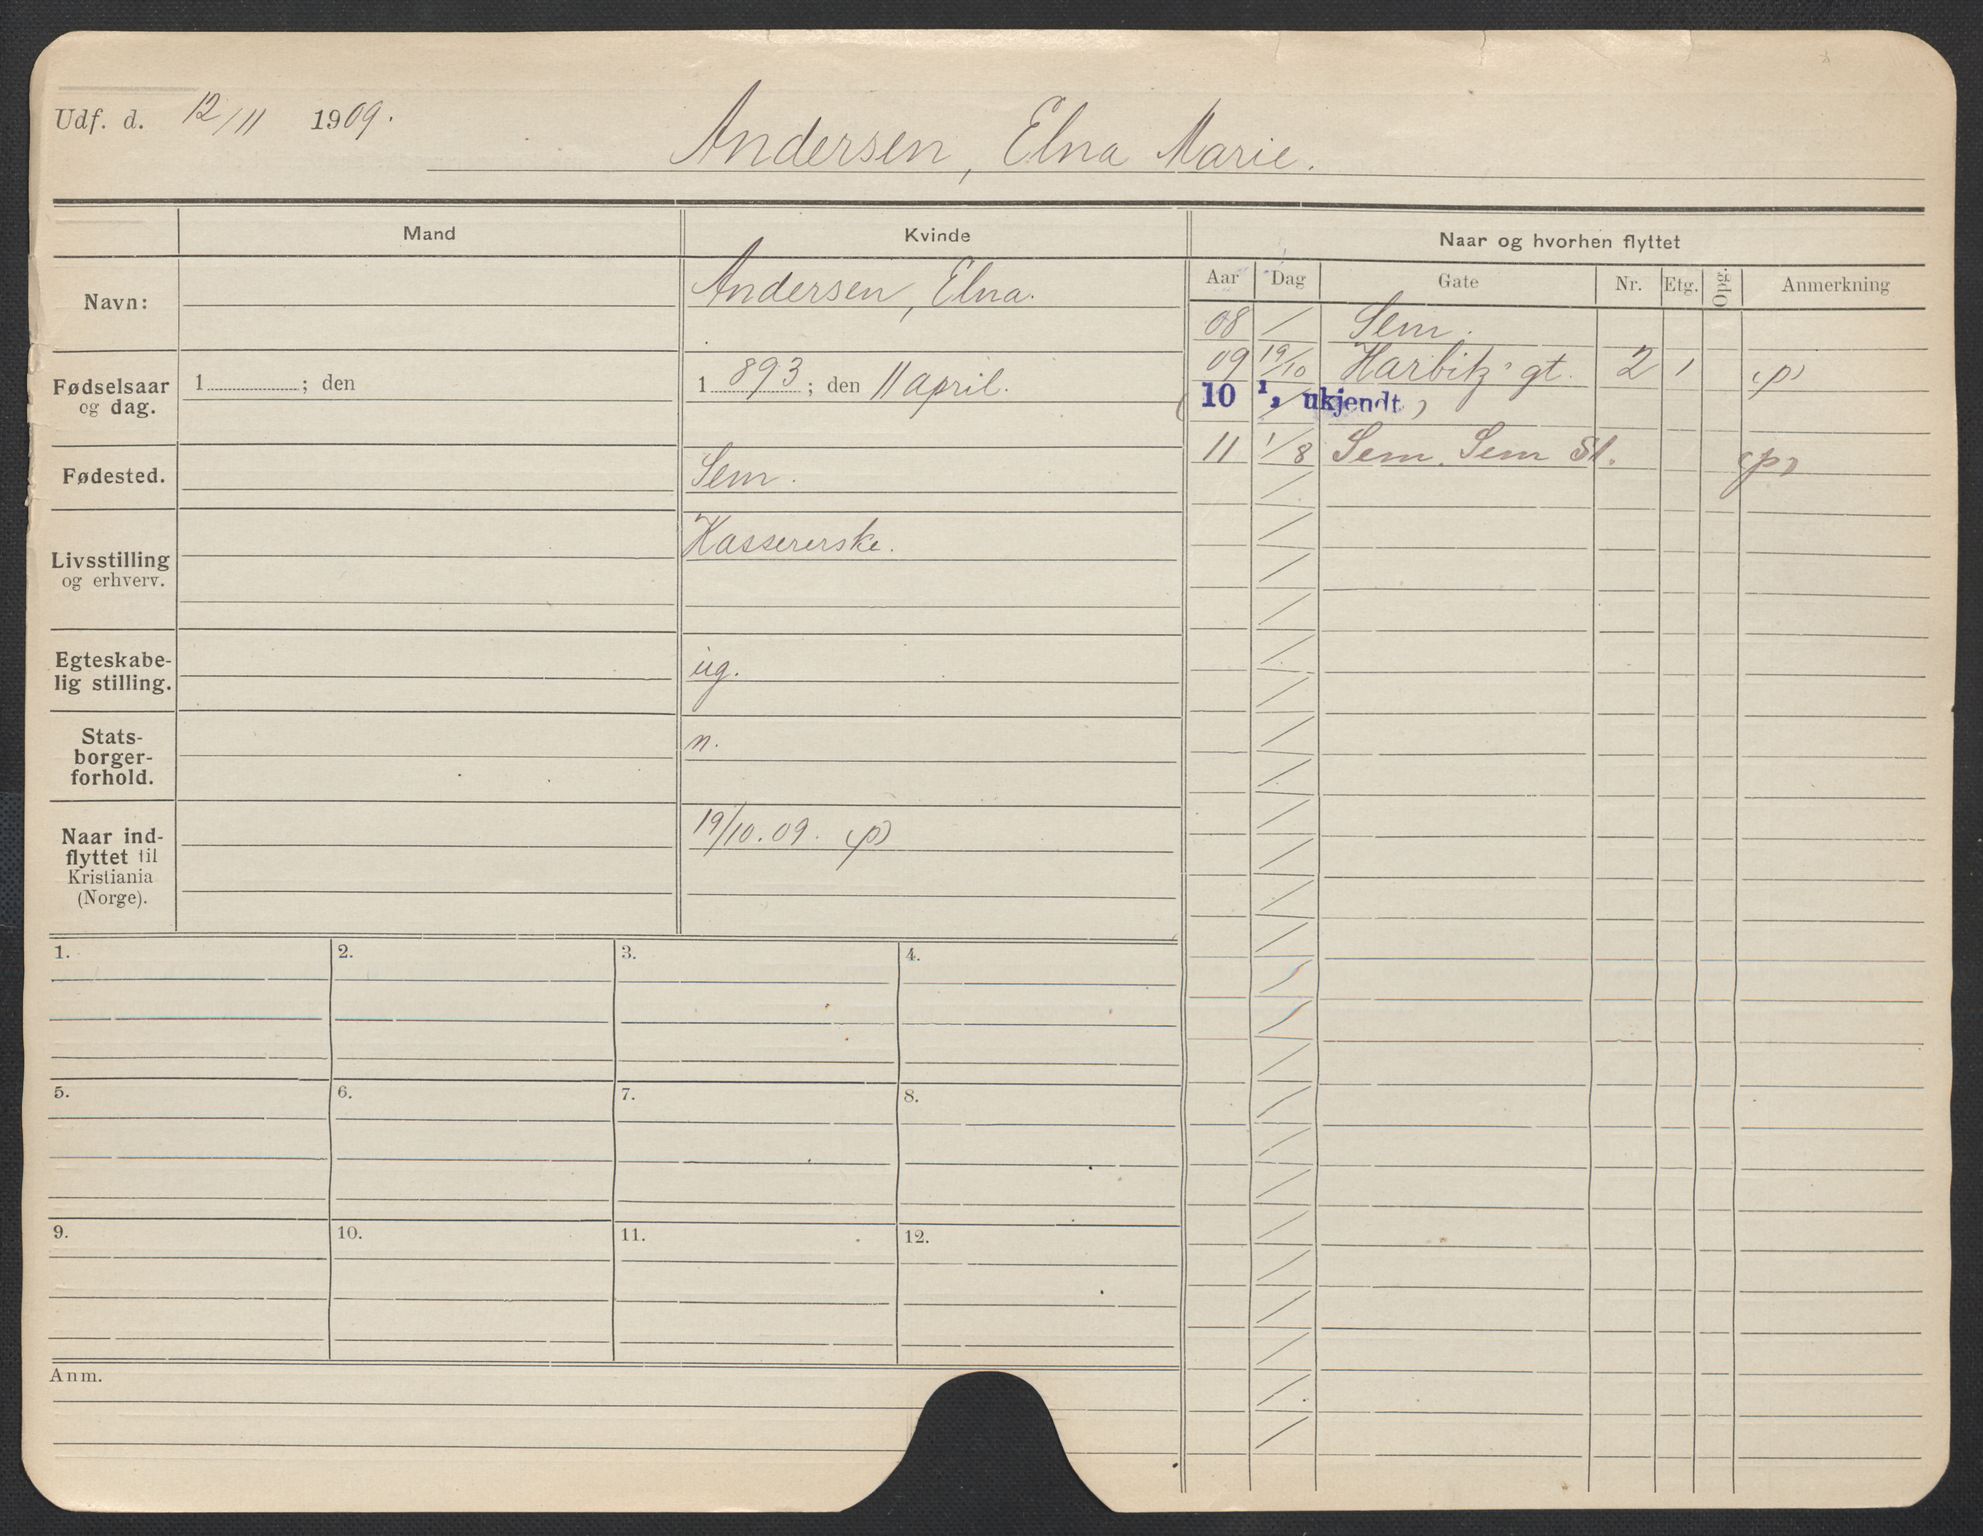 Udf. d. 12/11 1909.
Andersen, Elna Marie.
Mand
Kvinde
Naar og hvorhen flyttet
Aar Dag Gate Nr. Etg. Opg. Anmerkning
Navn: Andersen, Elna.
08 / Sem.
09 19/10 Harbitz' gt. 2 1 (p)
Fødselsaar og dag. 1 ; den 1 893 ; den 11 april.
(10 1/2 ukjendt)
11 1/8 Sem. Sem St. (p)
Fødested. Sem.
Livsstilling og erhverv. Kassererske.
Egteskabe-
lig stilling. ug.
Stats-
borger-
forhold. n.
Naar ind-
flyttet til
Kristiania
(Norge). 19/10.09. (p)
1. 2. 3. 4.
5. 6. 7. 8.
9. 10. 11. 12.
Anm.